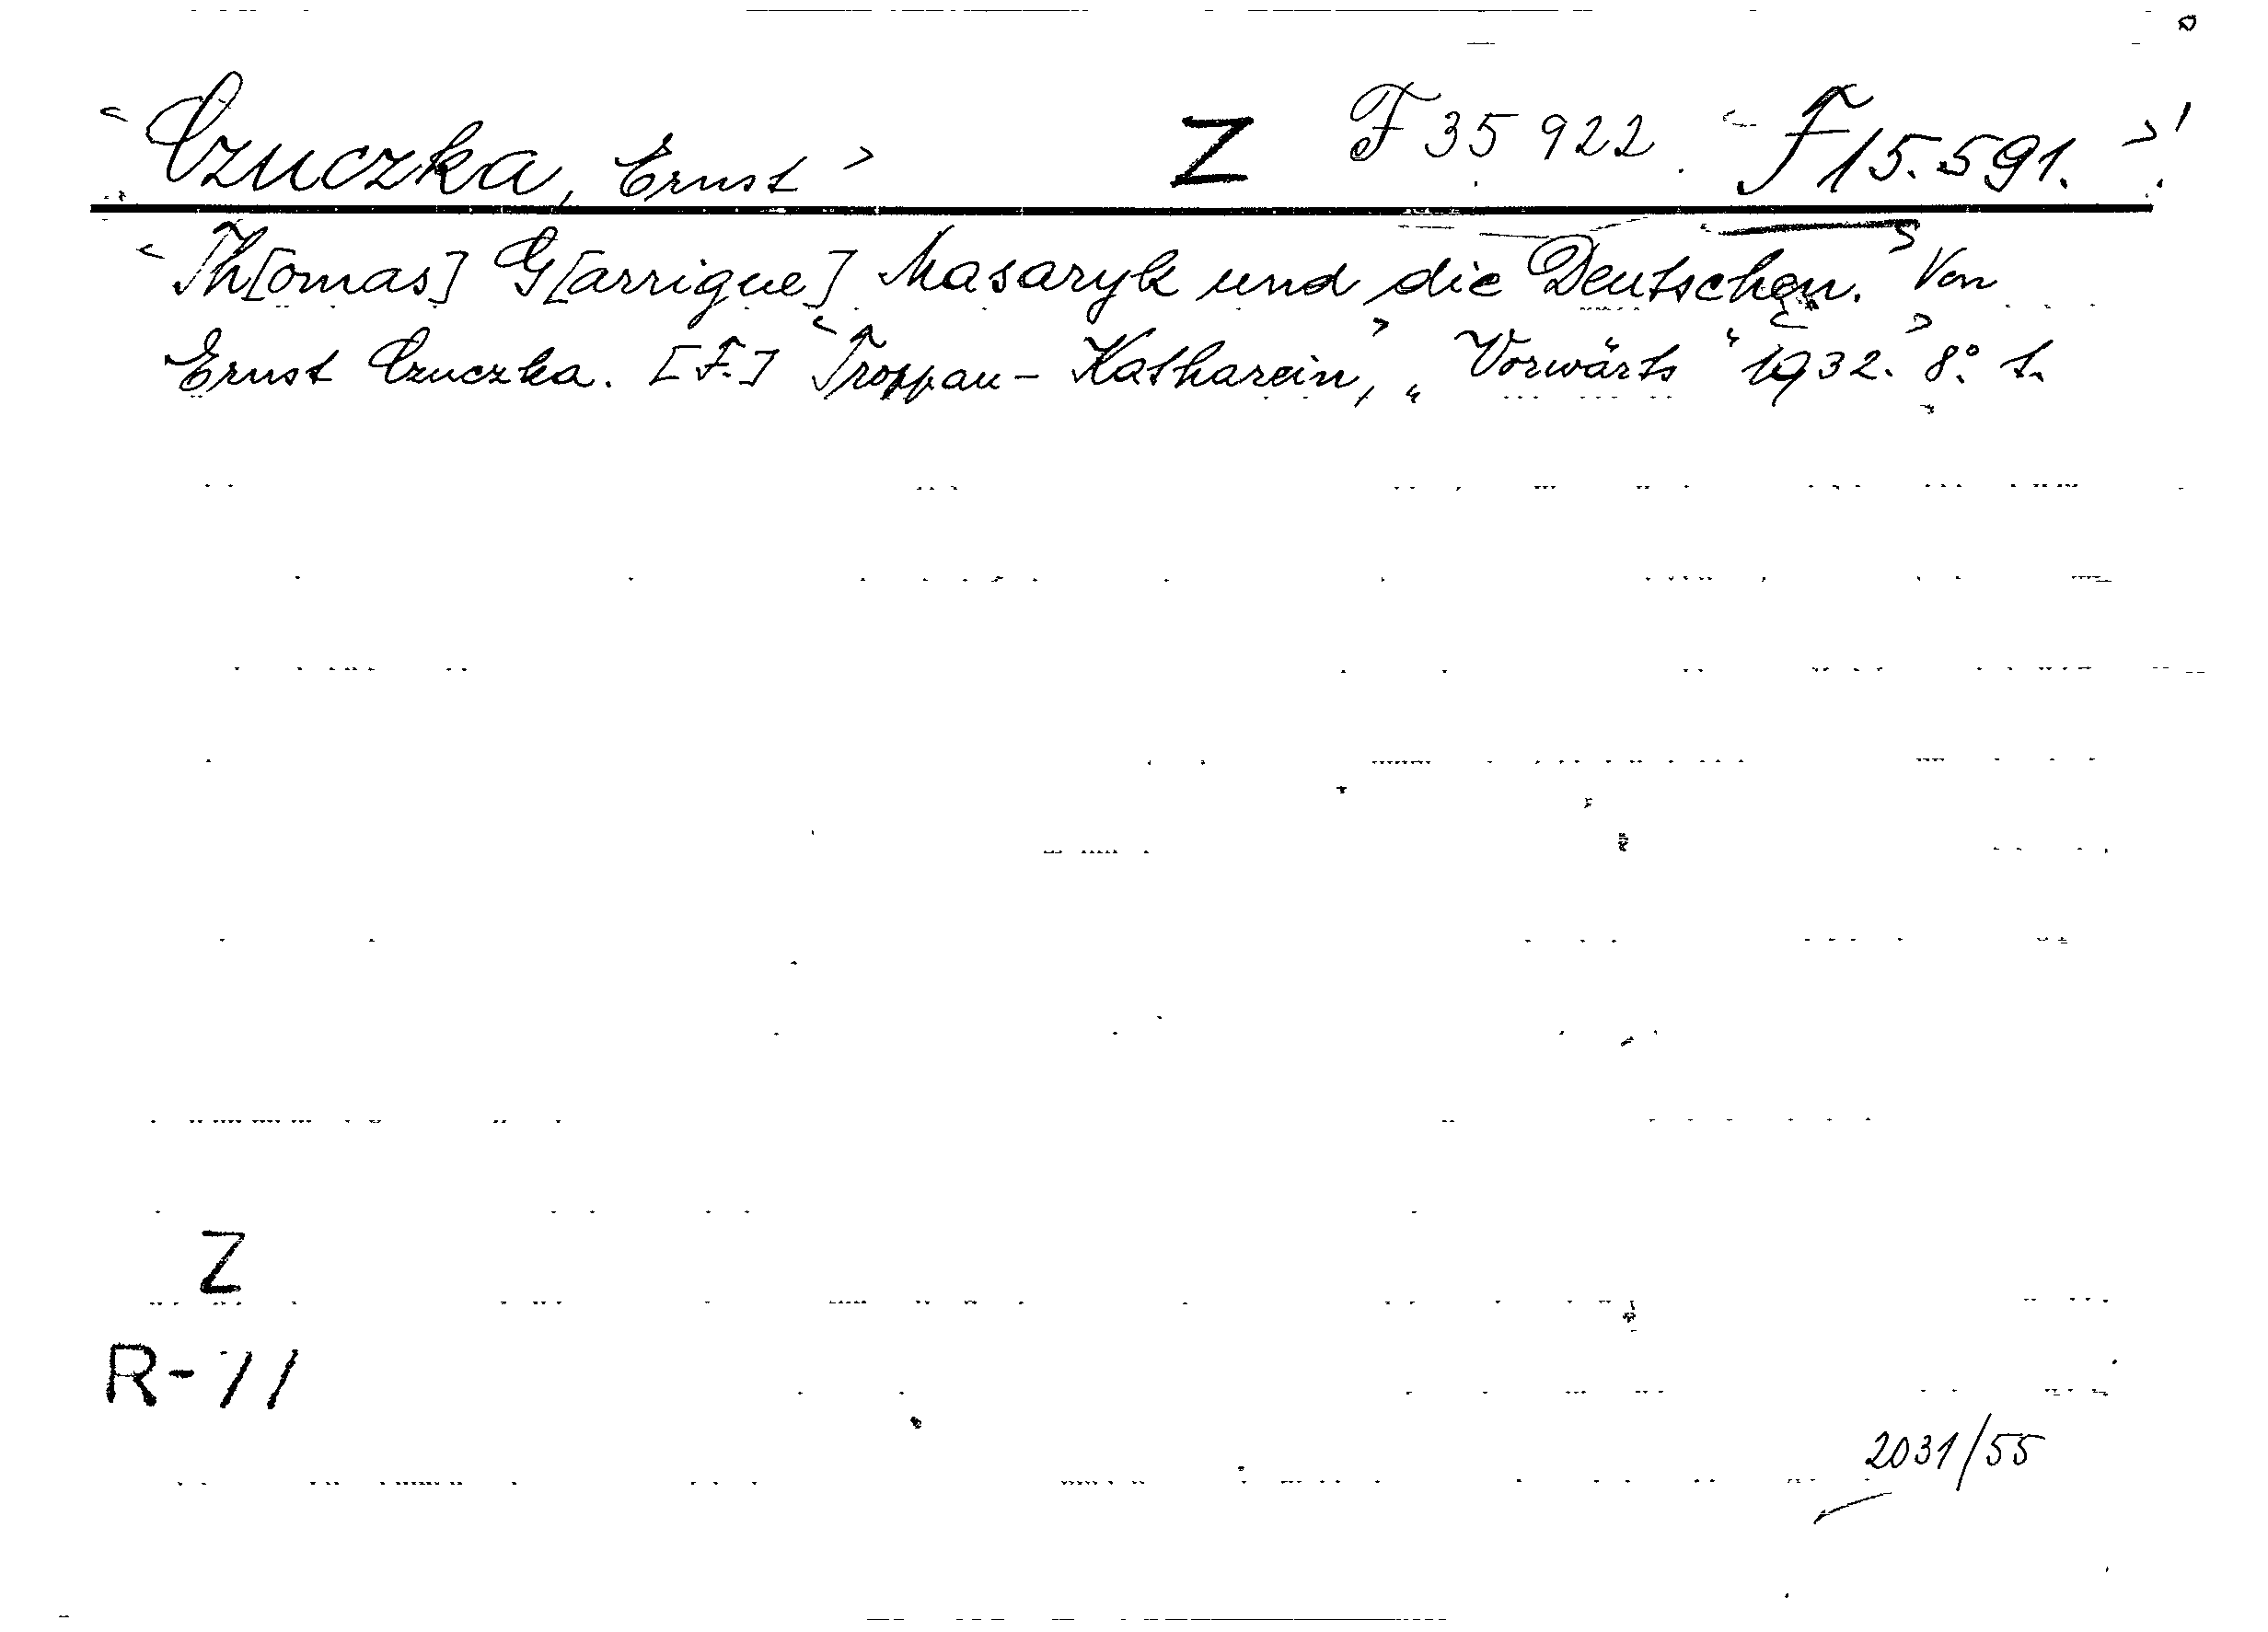 Czuczka, Ernst Z F 35 922 F 15.591.
Th[omas] G[arrigue] Masaryk und die Deutschen. Von
Ernst Czuczka. [F.] Troppau - Katharein, „Vorwärts“ 1932. 8°. 1.
Z
R-71
2031/55